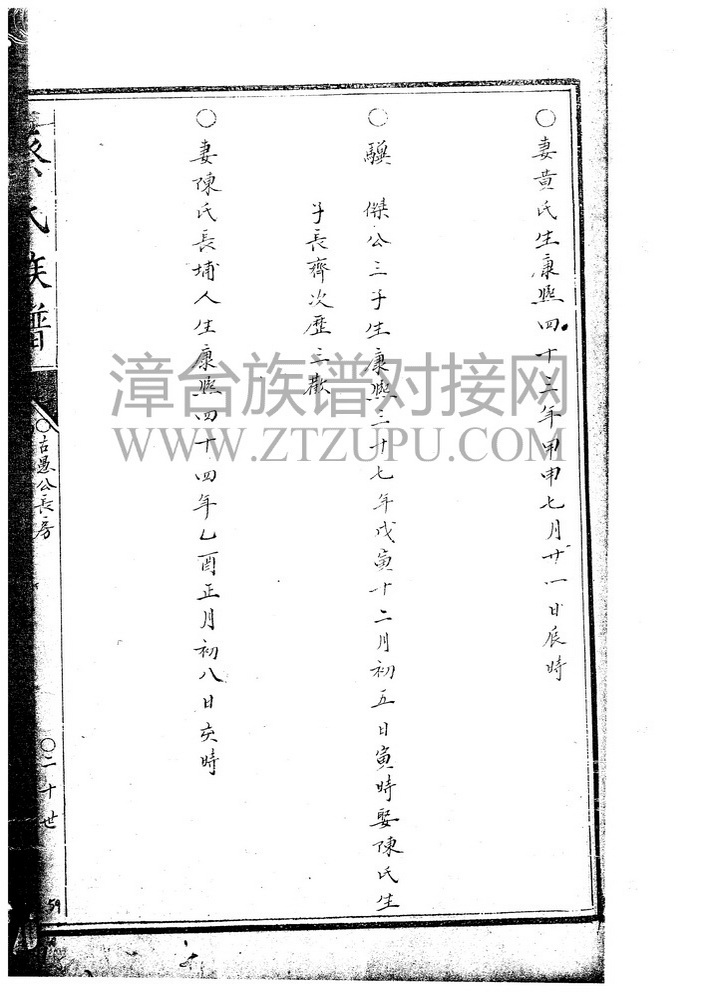 ○妻黃氏生康熙四十三年甲申七月廿一日辰時
○騹 傑公三子生康熙三十七年戊寅十二月初五日寅時娶陳氏生
子長齊次歷三歡
○妻陳氏長埔人生康熙四十四年乙酉正月初八日亥時
氏族譜
○古愚公長房
○二十世
59
漳台族谱对接网
WWW.ZTZUPU.COM